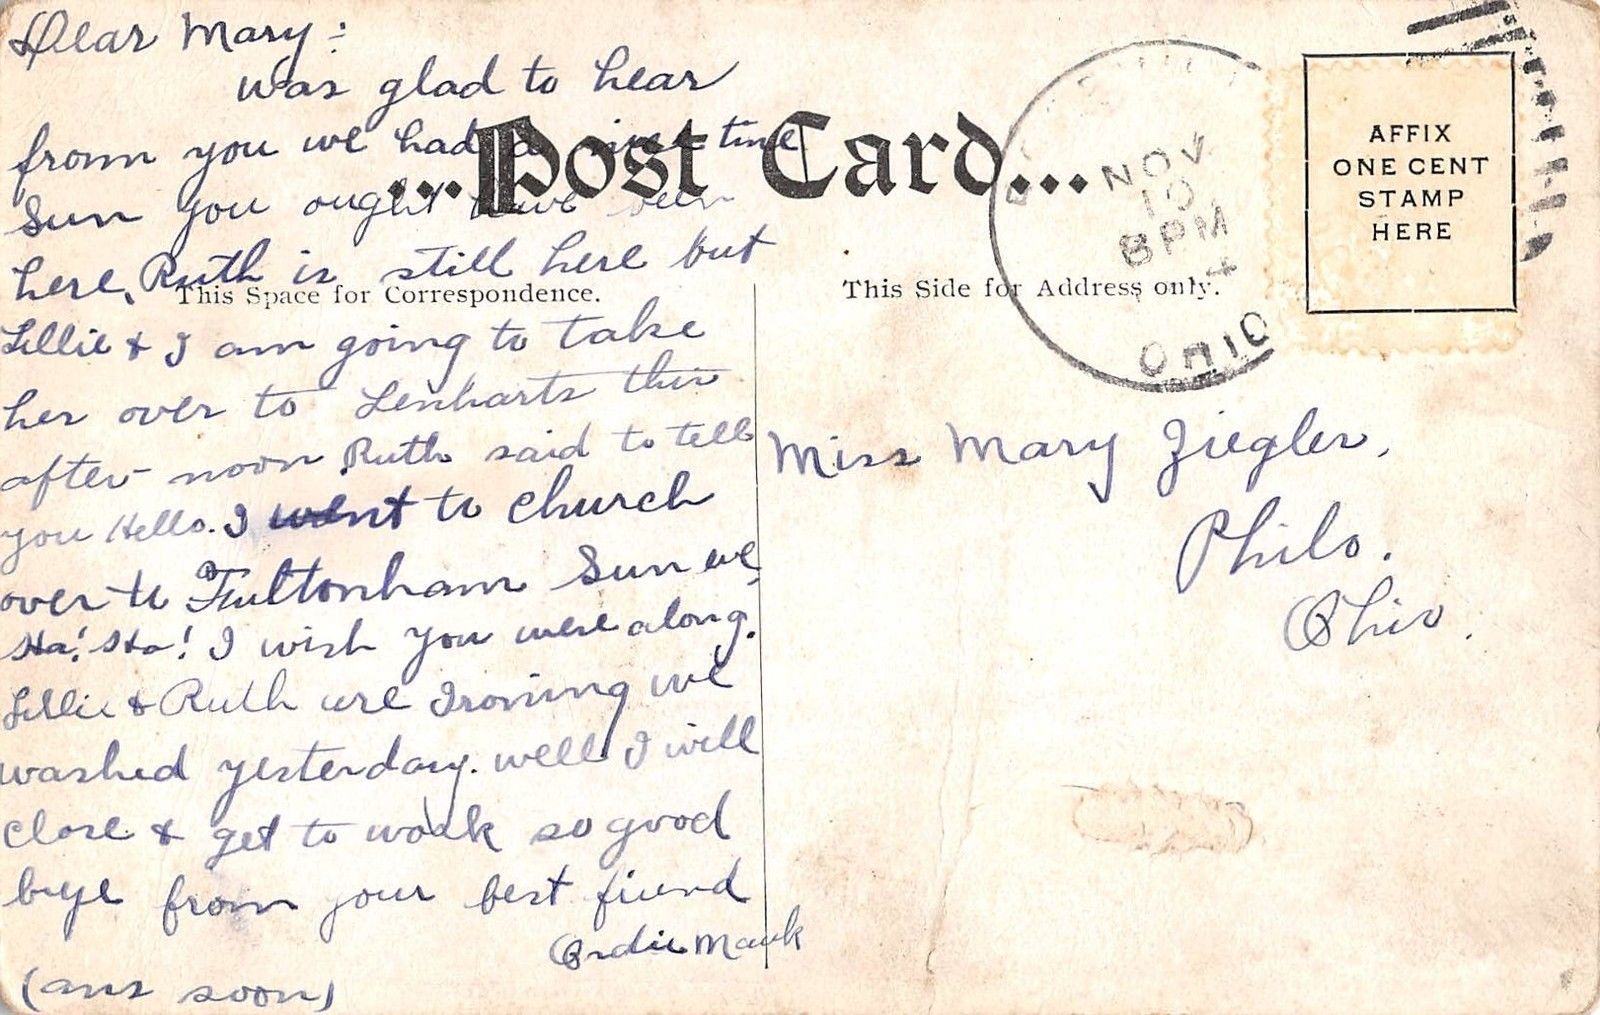 Dear Mary:
was glad to hear
from you we had a nice time
Sun you ought have been
here. Ruth is still here but
Lillie & I am going to take
her over to Lenharts this
after-noon Ruth said to tell
you Hello. I went to church
over to Fultonham Sun eve,
Ha! Ha! I wish you were along.
Lillie & Ruth are Ironing we
washed yesterday. well I will
close & get to work so good
bye from your best friend
Ordie Mauk
(ans soon)
...Post Card...
This Space for Correspondence.
This Side for Address only.
NOV
10
8 PM
OHIO
AFFIX
ONE CENT
STAMP
HERE
Miss Mary Ziegler,
Philo.
Ohio.